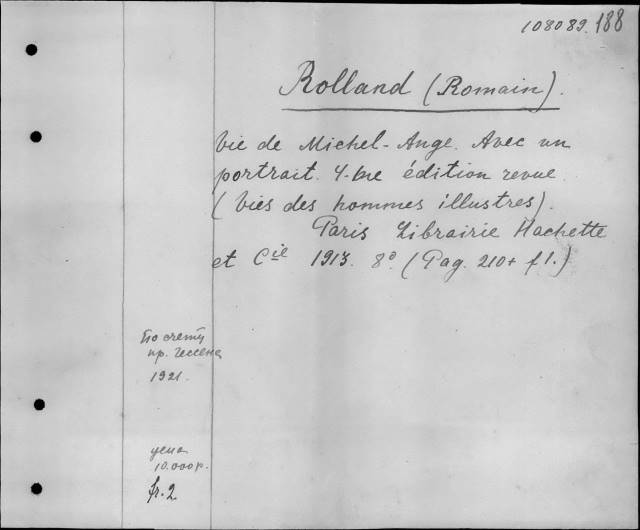 108089. 188
Rolland (Romain).
Vie de Michel-Ange. Avec un
portrait. 4-me édition revue.
(Vies des hommes illustres).
Paris Librairie Hachette
et Cie 1913. 8° (Pag. 210+ f 1.)
По счету
пр.
1921.
цена
10.000р.
fr. 2